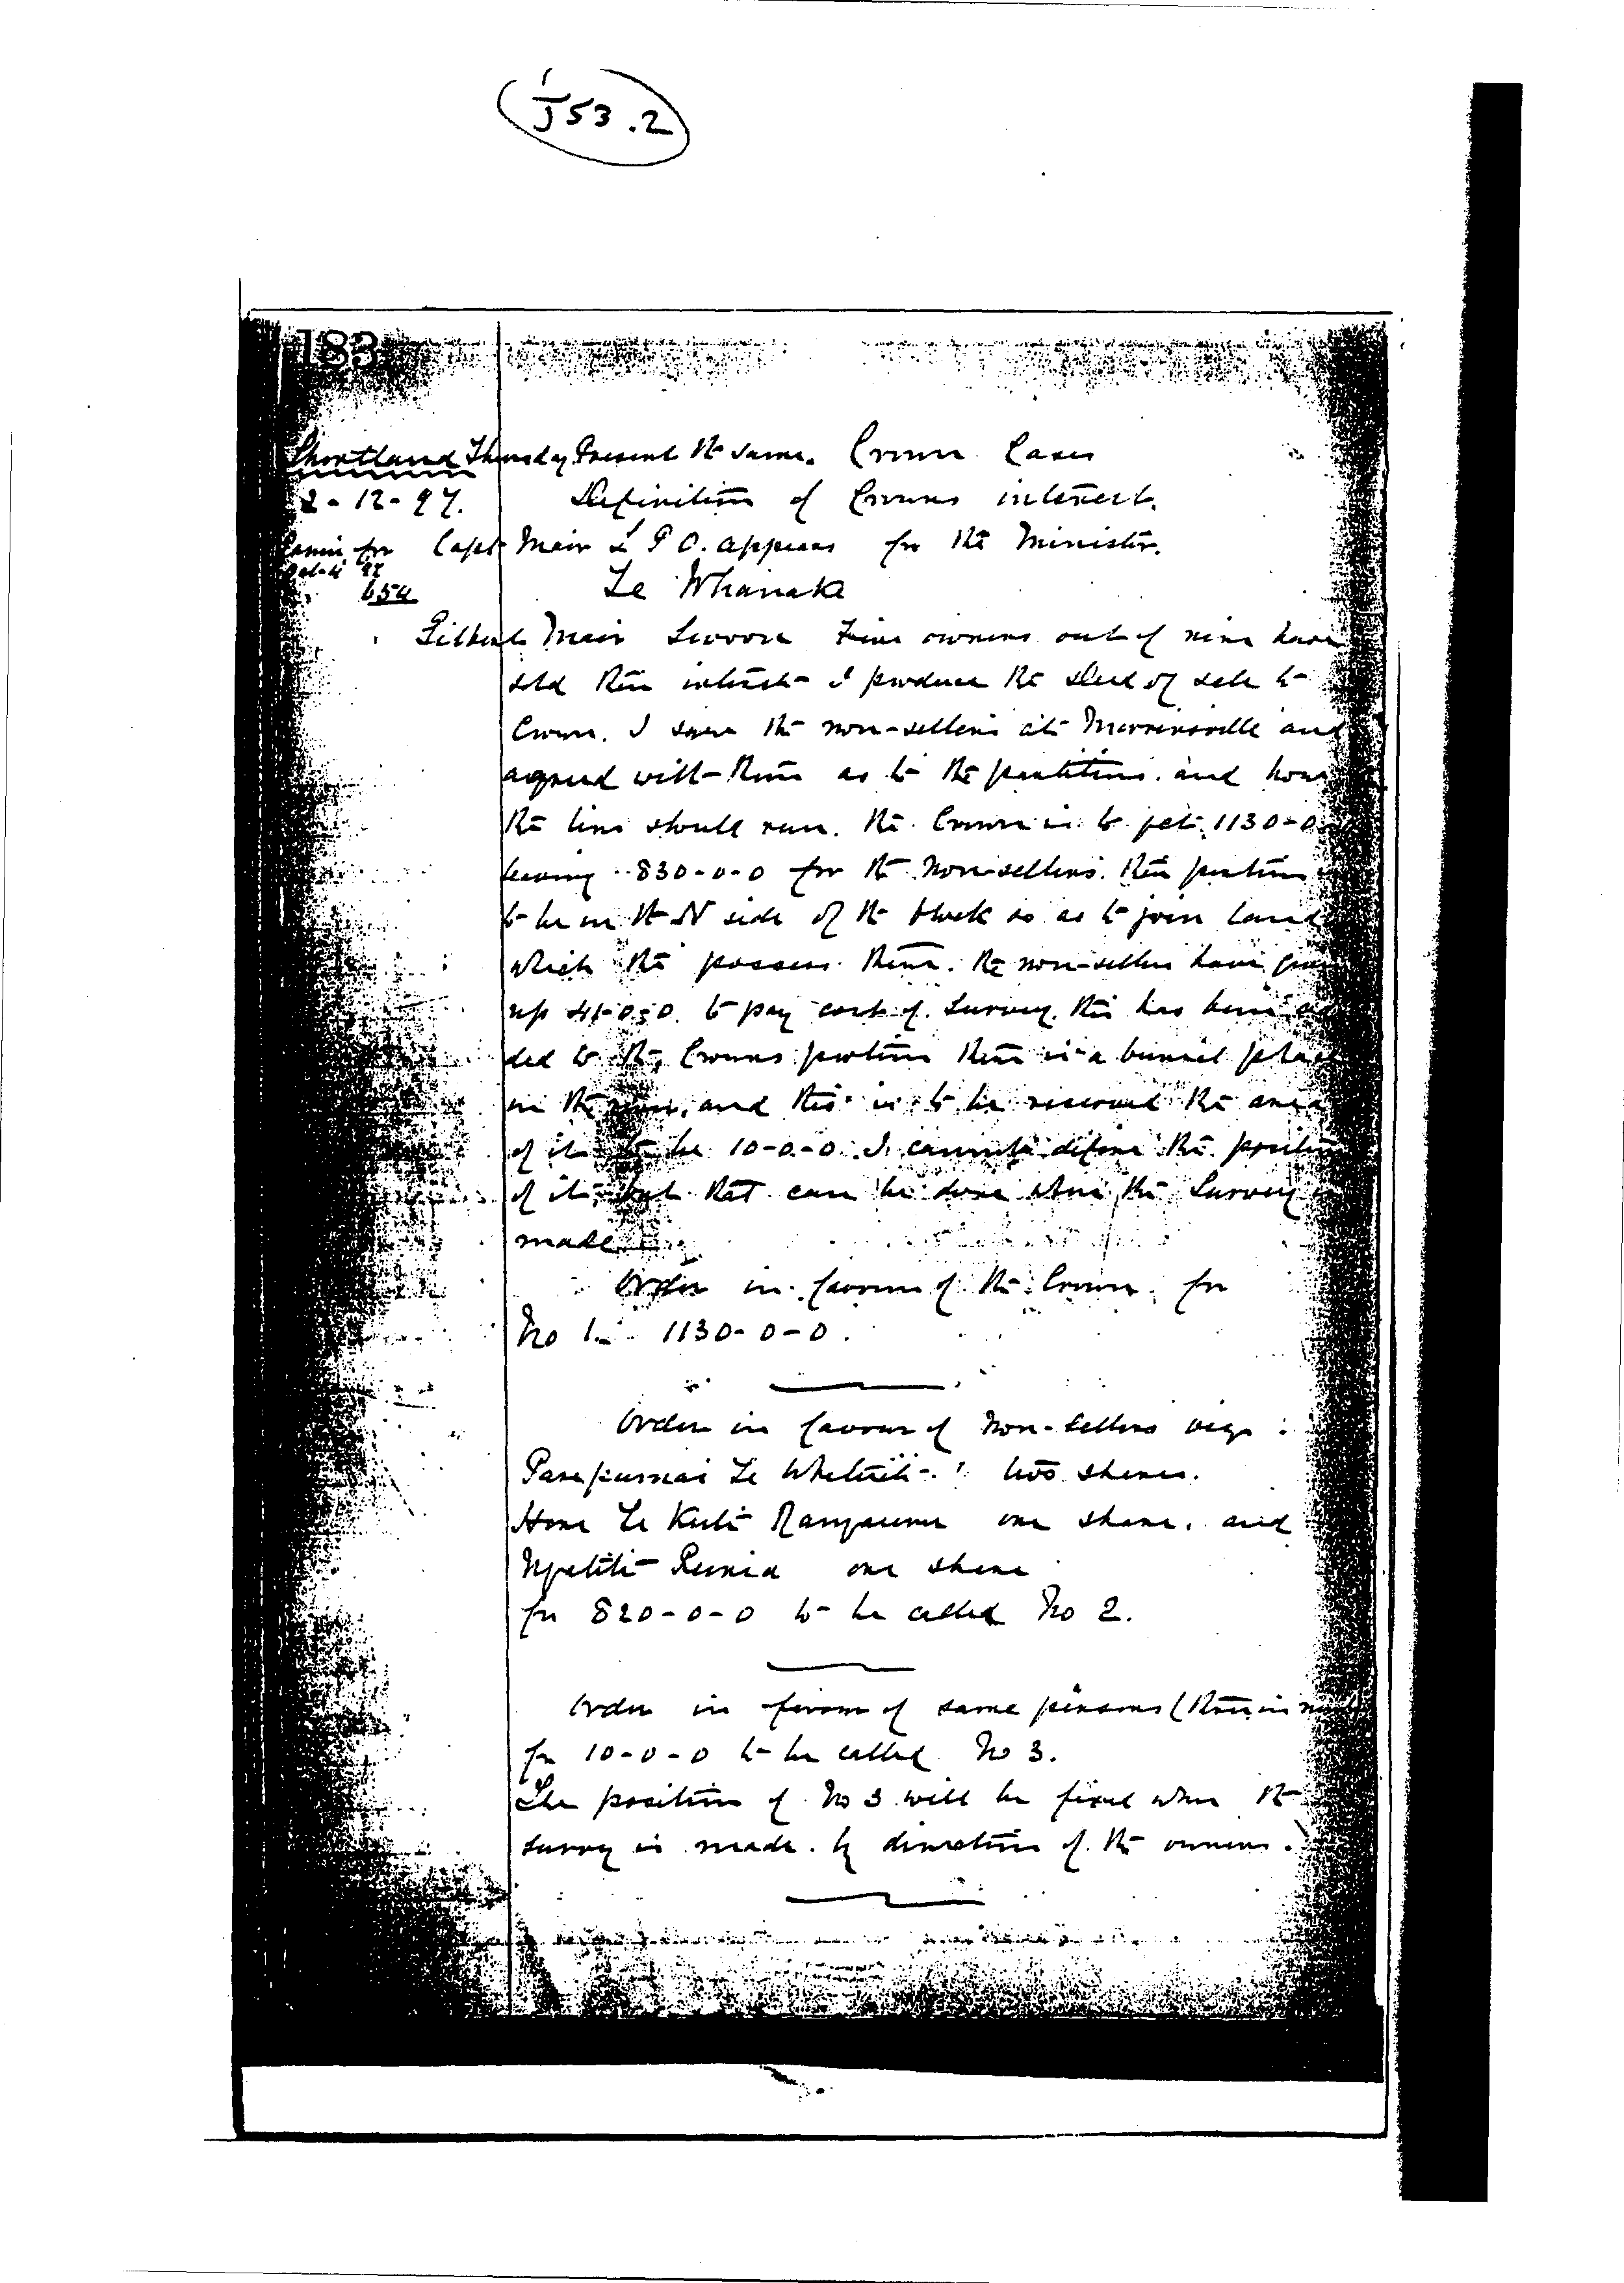 J53.2
183
Shortland Thursday Present the same. Crown Cases
2-12-97. Definition of Crowns interest.
Capt Mair L P O. appears for the Minister.
654 Te Whanake
Gilbert Mair Sworn Five owners out of nine have
sold their interests I produce the deed of sale to
Crown. I saw the non-sellers at Morrinsville and
agreed with them as to the partition and how
the line should run. The Crown is to get 1130-0
leaving 830-0-0 for the non-sellers. Their portion
to be on the N side of the block so as to join land
which the possess there. The non-sellers have
up 41-0-0 to pay cost of survey. This has been
ded to the Crowns portion There is a burial place
on the and this is to be reserved the area
of it to be 10-0-0. I cannot define the position
of it but that can be done when the Survey is
made
Order in favour of the Crown for
No 1. 1130-0-0.
Order in favour of non-sellers viz:
Te two shares.
Hone Te one share. and
Ngatiti one share
for 820-0-0 to be called No 2.
Order in favour of same persons (
for 10-0-0 to be called No 3.
The position of No 3 will be fixed when the
survey is made. by direction of the owners.